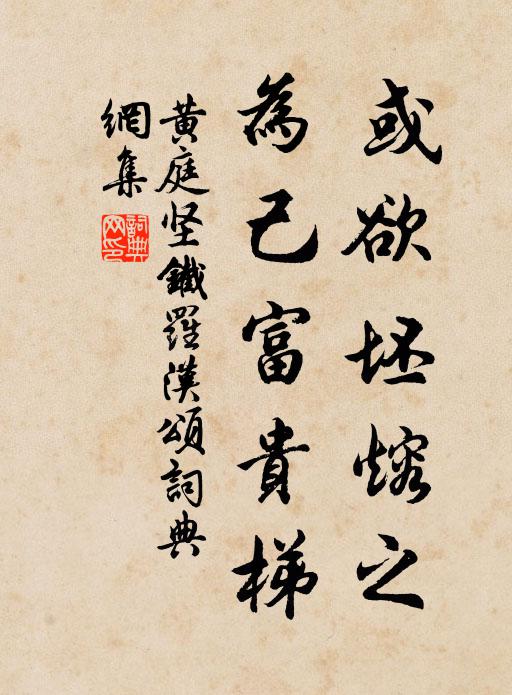 或欲坯熔之
為己富貴梯
黄庭坚鐵羅漢頌詞典
網集
詞典
网印